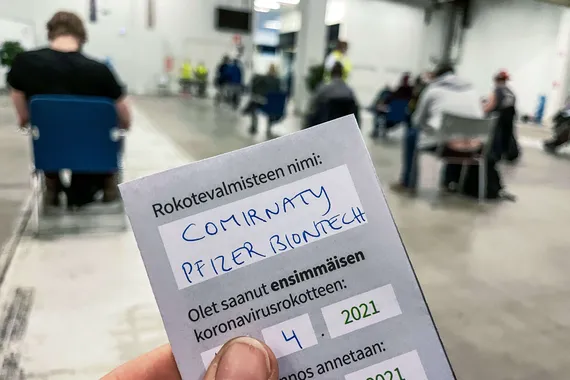 Rokotevalmisteen nimi:
COMIRNATY
PFIZER BIONTECH
Olet saanut ensimmäisen
koronavirusrokotteen:
4 . 2021
annetaan:
2021